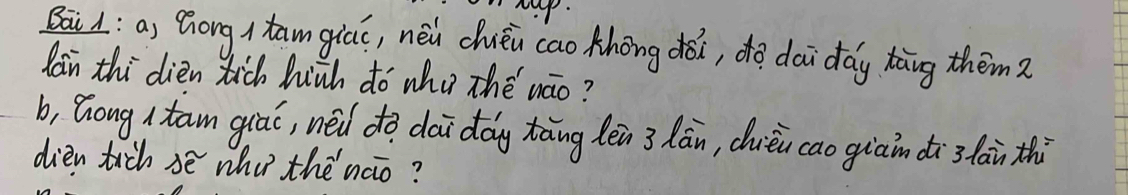 Bài 1: a, Trong 1 tam giác, nếu chiều cao không đổi, độ dài đáy tăng thêm 2
lần thì diện tích hình đó như thế nào?
b, Trong 1 tam giác, nếu độ dài đáy tăng lên 3 lần, chiều cao giảm đi 3 lần thì
diện tích sẽ như thế nào?